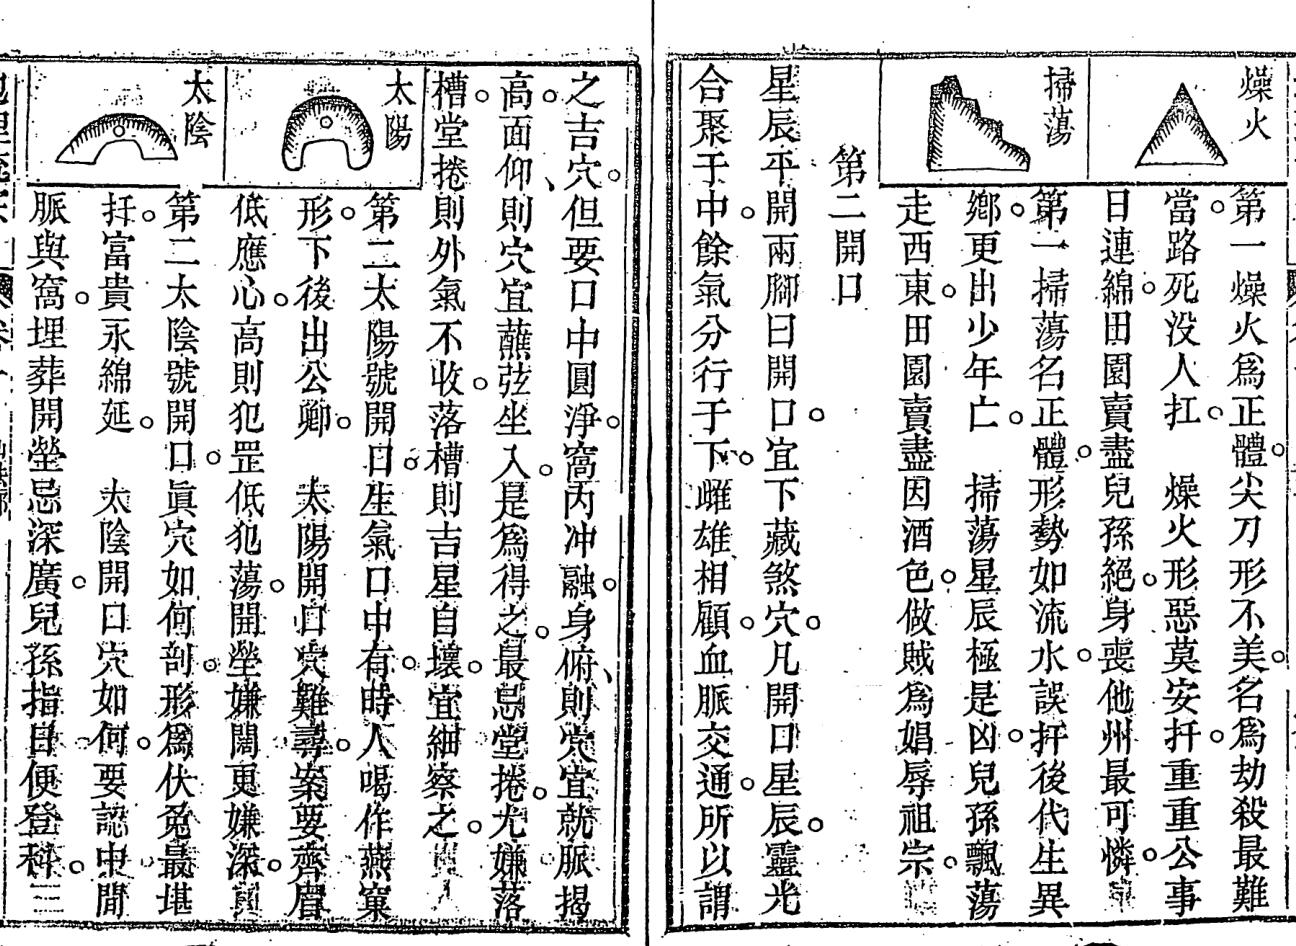 燥火
第一燥火爲正體尖刀形不美名爲劫殺最難
當路死没人扛　燥火形惡莫安扦重重公事
日連綿田園賣盡兒孫絕身喪他州最可憐
掃蕩
第一掃蕩名正體形勢如流水誤扦後代生異
鄉更出少年亡　掃蕩星辰極是凶兒孫飄蕩
走西東田園賣盡因酒色做賊爲娼辱祖宗
第二開口
星辰平開兩腳曰開口宜下藏煞穴凡開口星辰靈光
合聚于中餘氣分行于下雌雄相顧血脈交通所以謂
之吉穴但要口中圓淨窩内冲融身俯則穴宜就脈揭
高面仰則穴宜蘸弦坐入是爲得之最忌堂捲尤嫌落
槽堂捲則外氣不收落槽則吉星自壞宜細察之
太陽
第二太陽號開口生氣口中有時人喝作燕窠
形下後出公卿　太陽開口穴難尋案要齊眉
低應心高則犯罡低犯蕩開塋嫌闊更嫌深
太陰
第二太陰號開口眞穴如何剖形爲伏兔最堪
扦富貴永綿延　太陰開口穴如何要認中間
脈與窩埋葬開塋忌深廣兒孫指日便登科